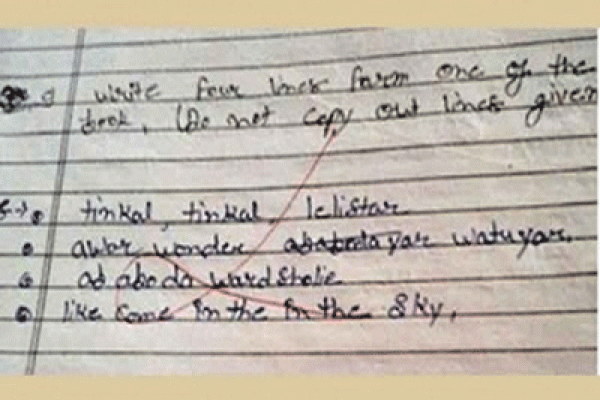 write four lines farm one of the
book, (Do not copy out lines given
tinkal, tinkal, lelistar
awar wonder yar watuyar.
ad aboda wardsholie
like come in the in the sky,